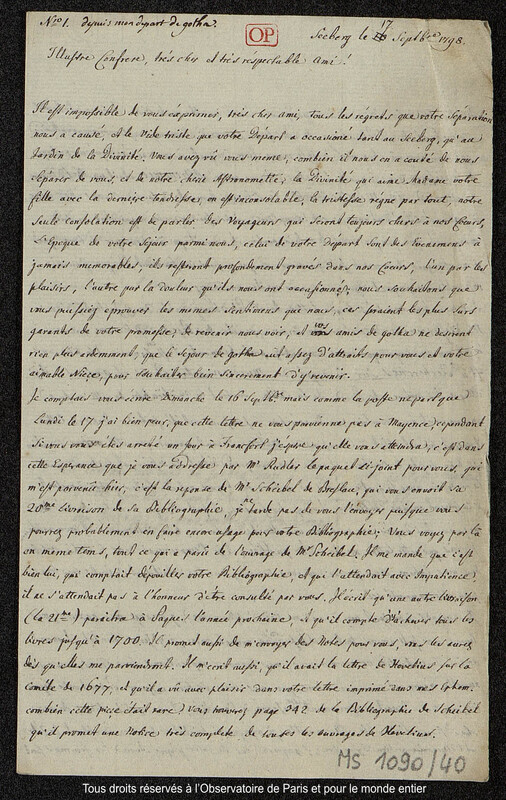 Nro 1. depuis mon depart de gotha.
OP
Seeberg le 17 Septbre 1798.
Illustre Confrere, très cher et très respectable Ami!
Il est impossible de vous exprimer, très cher ami, tous les regrets que votre Séparation
nous a causé, et le Vide triste que votre Depart a occasioné tant au Seeberg, qu'au
Jardin de la Divinité; Vous avez vû vous meme, combien il nous en a couté de nous
séparer de vous, et de notre chère Astronomette; la Divinité qui aime Madame votre
fille avec la derniere tendresse, en est inconsolable, la tristesse regne par tout, notre
seule consolation est de parler des Voyageurs qui seront toujours chers à nos Coeurs,
L'Epoque de votre Sejour parmi nous, celui de votre Départ sont des Evenemens à
jamais memorables, ils resteront profondement gravés dans nos Coeurs, l'un par les
plaisirs, l'autre par la douleur qu'ils nous ont occasionnés; nous souhaitons que
vous puissiez eprouver les memes Sentimens que nous, ces seraient les plus surs
garants de votre promesse, de revenir nous voir, et vos amis de gotha ne desirent
rien plus ardemment, que le sejour de gotha ait assez d'attraits pour vous et votre
aimable Niece, pour souhaiter bien sincerement d'y revenir.
Je comptais vous ecrire Dimanche le 16 Septbr. mais comme la poste ne part que
Lundi le 17 j'ai bien peur, que cette lettre ne vous parvienne pas à Mayence; cependant
si vous vous êtes arreté un jour à Francfort j'espere qu'elle vous attendra, c'est dans
cette Esperance que je vous addresse par Mr Rudler le paquet ci-joint pour vous, qui
m'est parvenue hier, c'est la reponse de Mr Scheibel de Breslau, qui vous envoit sa
20me Livraison de sa Bibliographie, je ne tarde pas de vous l'envoyer puisque vous
pourrez probablement en faire encore usage pour votre Bibliographie; Vous voyez par là
en meme tems, tout ce qui a parû de l'ouvrage de Mr Scheibel. Il me mande que c'est
bien lui, qui comptait dépouiller votre Bibliographie, et qui l'attendait avec Impatience,
il ne s'attendait pas à l'honneur d'être consulté par vous. Il écrit qu'une autre livraison
(la 21me) paraîtra à Paques l'année prochaine, et qu'il compte d'achever tous les
livres jusqu'à 1700. Il promet aussi de m'envoyer des Notes pour vous, vous les aurez
dès qu'elles me parviendront. Il m'ecrit aussi, qu'il avait la lettre de Hevelius sur la
Comète de 1677, et qu'il a vû avec plaisir dans votre lettre imprimé dans mes Ephem.
combien cette piece était rare; Vous trouvez page 342 de la Bibliographie de Scheibel
qu'il promet une Notice très complete de toutes les ouvrages de Hevelius.
MS 1090/40
Tous droits réservés à l'Observatoire de Paris et pour le monde entier